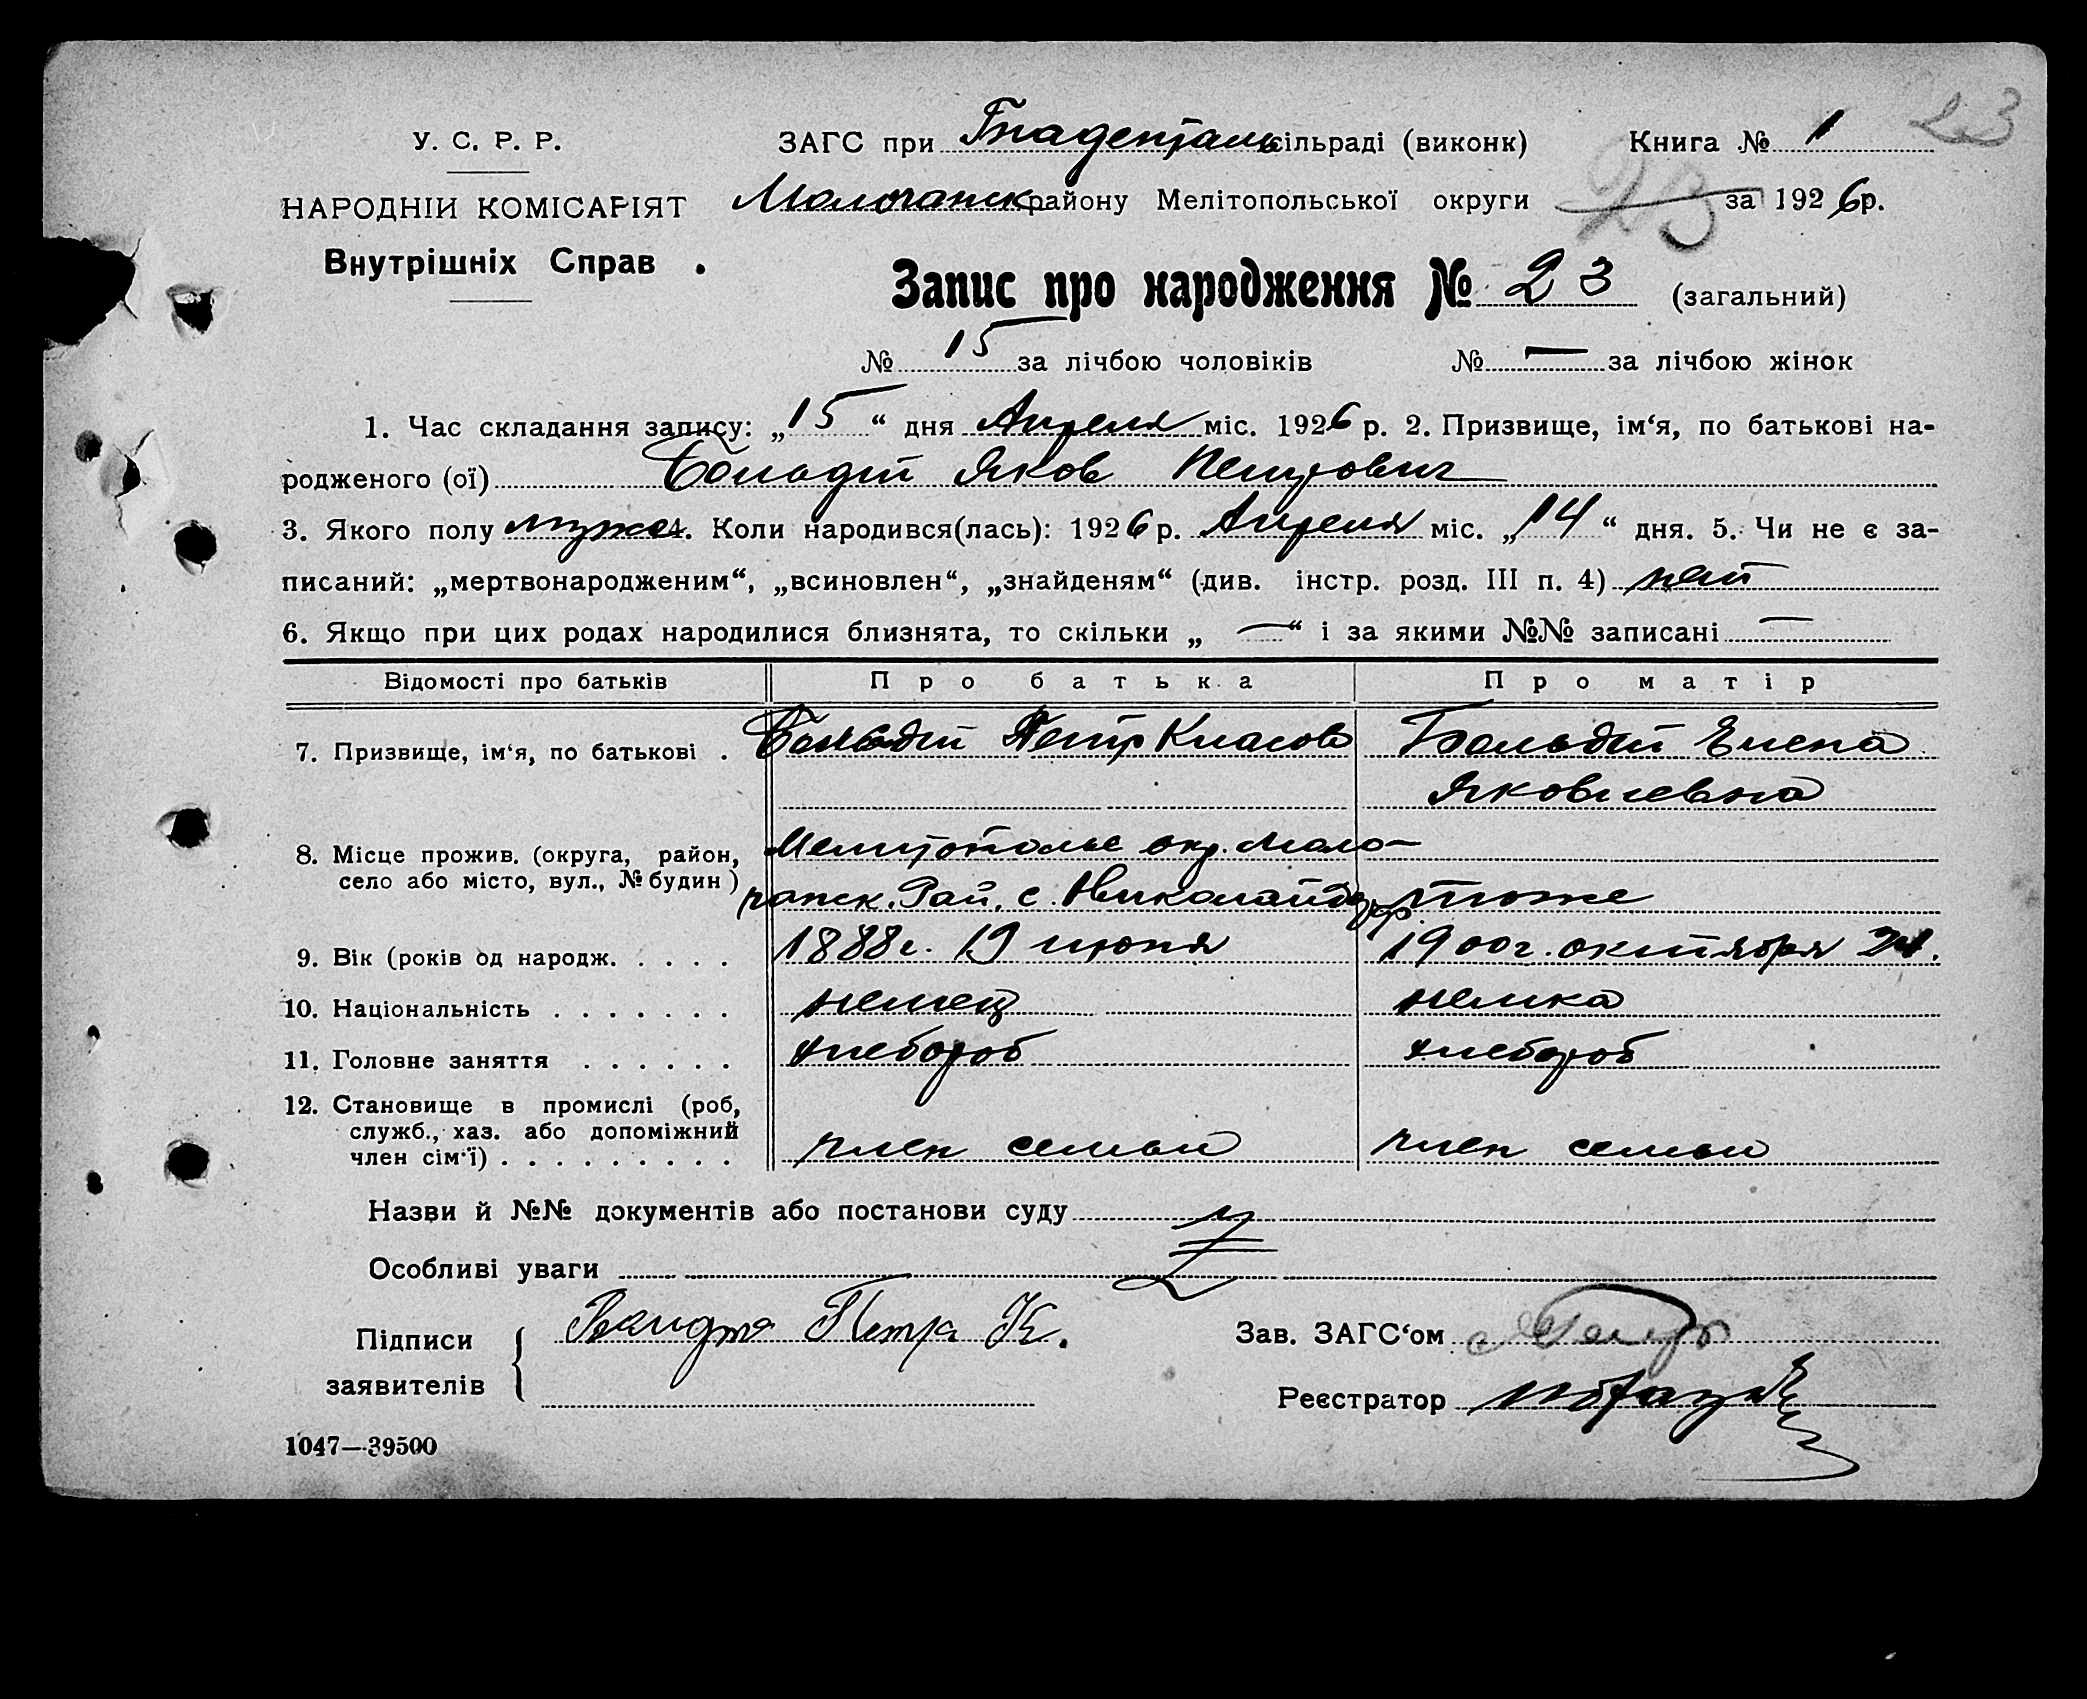 23
У. С. Р. Р.
ЗАГС при Гнаденталь сільраді (виконк) Книга № 1
НАРОДНІЙ КОМІСАРІЯТ
Молочанск району Мелітопольської округи 23 за 1926 р.
Внутрішніх Справ
Запис про народження № 23 (загальний)
№ 15 за лічбою чоловіків № — за лічбою жінок
1. Час складання запису: „15“ дня Апреля міс. 1926 р. 2. Призвище, ім‘я, по батькові на-
родженого (ої) Больдт Яков Петрович
3. Якого полу муже 4. Коли народився(лась): 1926 р. Апреля міс. „14“ дня. 5. Чи не є за-
писаний: „мертвонародженим“, „всиновлен“, „знайденям“ (див. інстр. розд. III п. 4)
6. Якщо при цих родах народилися близнята, то скільки „—“ і за якими №№ записані —
Відомості про батьків Про батька Про матір
7. Призвище, ім‘я, по батькові . Больдт Петр Класов Больдт Елена
Яковлевна
8. Місце прожив. (округа, район, село або місто, вул., № будин) Мелитополье окр. Моло-
чанск. Рай. с. Николайдорф тоже
9. Вік (років од народж. . . . . 1888 г. 19 июня 1900 г. октября 21.
10. Національність . . . . . . . немец немка
11. Головне заняття . . . . . . хлебороб хлебороб
12. Становище в промислі (роб, служб., хаз. або допоміжний член сім‘ї) . . . . . . . . . член семьи член семьи
Назви й №№ документів або постанови суду
Особливі уваги
Підписи заявителів Петр К.
Зав. ЗАГС‘ом
Реєстратор
1047—39500